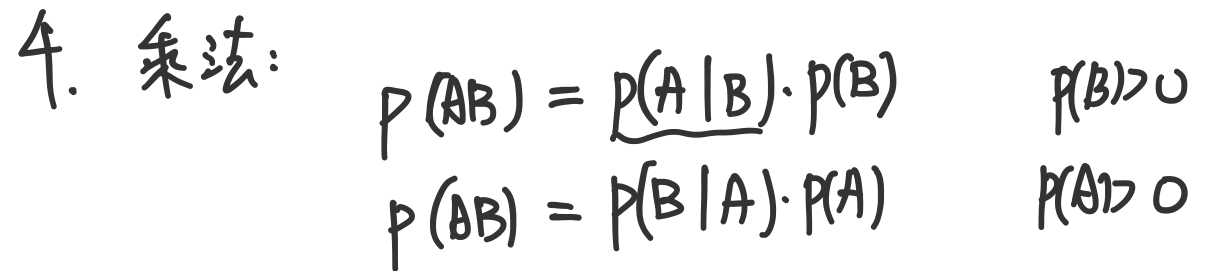 4. 乘法:
P(AB) = P(A|B)·P(B) P(B)>0
P(AB) = P(B|A)·P(A) P(A)>0